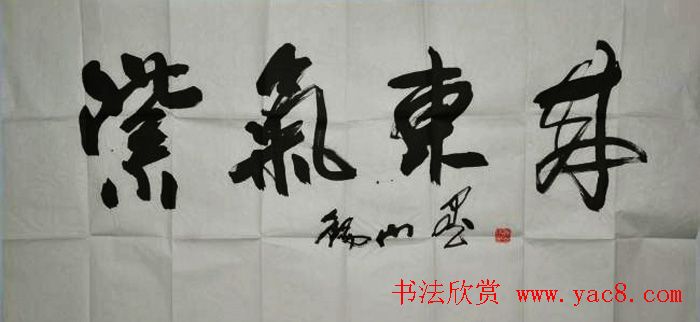 紫氣東來
山墨
书法欣赏 www.yac8.com